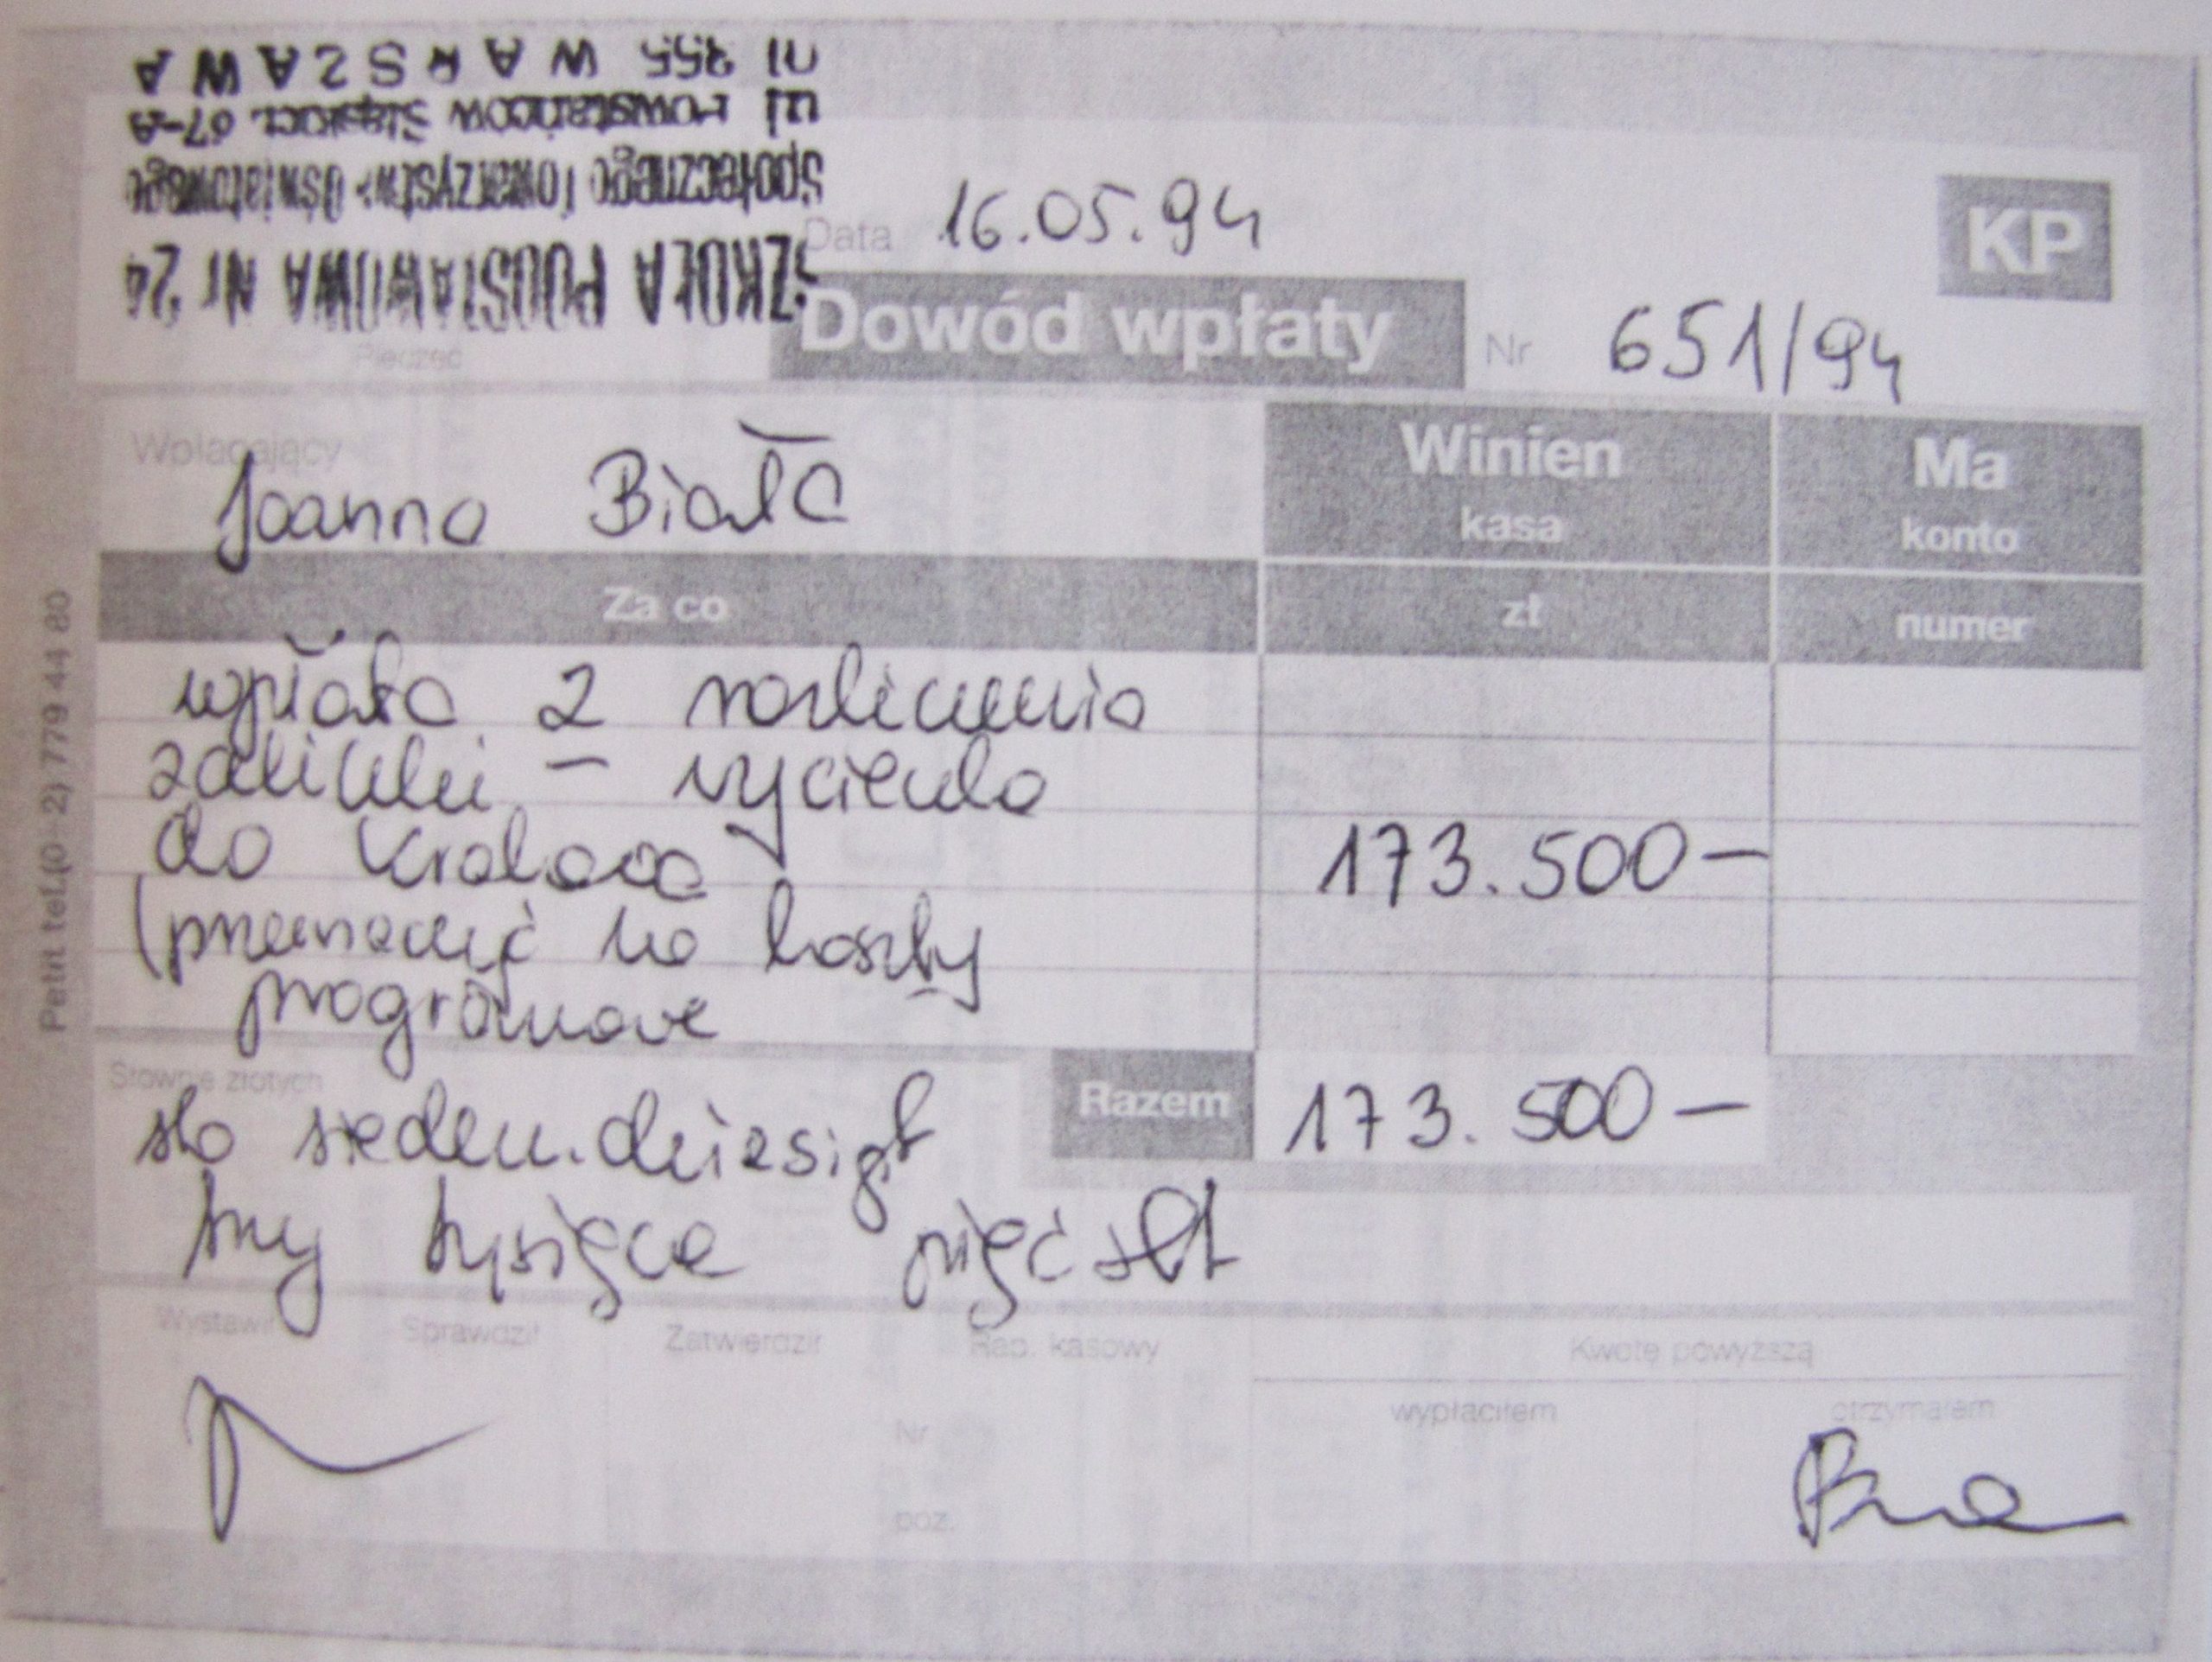 SZKOŁA PODSTAWOWA Nr 24
Społecznego Towarzystwa Oświatowego
ul Powstańców Śląskich 67-A
01 355 WARSZAWA
Pieczęć
Data 16.05.94
KP
Dowód wpłaty
Nr 651/94
Wpłacający
Joanna Biała
Winien
kasa
Ma
konto
Za co
zł
numer
wpłata z rozliczenia
zaliczki – wycieczka
do Krakowa
173.500–
(przeznaczyć na koszty
programowe
Słownie złotych
Razem
173.500–
sto siedemdziesiąt
trzy tysiące pięćset
Wystawił
Sprawdził
Zatwierdził
Rap. kasowy
Kwotę powyższą
Nr
poz.
wypłaciłem
otrzymałem
Petit tel.(0-2) 779 44 80